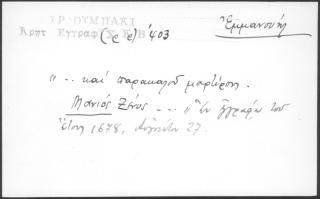 ΤΡΟΥΜΠΑΚΙ
Κρητ Εγγραφ (Χ Κ Β) 403
Ἐμμανουήλ
"... καὶ παρακαλοῦ μαρτύροι.
Μανιὸς Ζένος ... " Ἐν ἐγγράφῳ τοῦ
ἔτους 1678, Αὐγούστου 27.